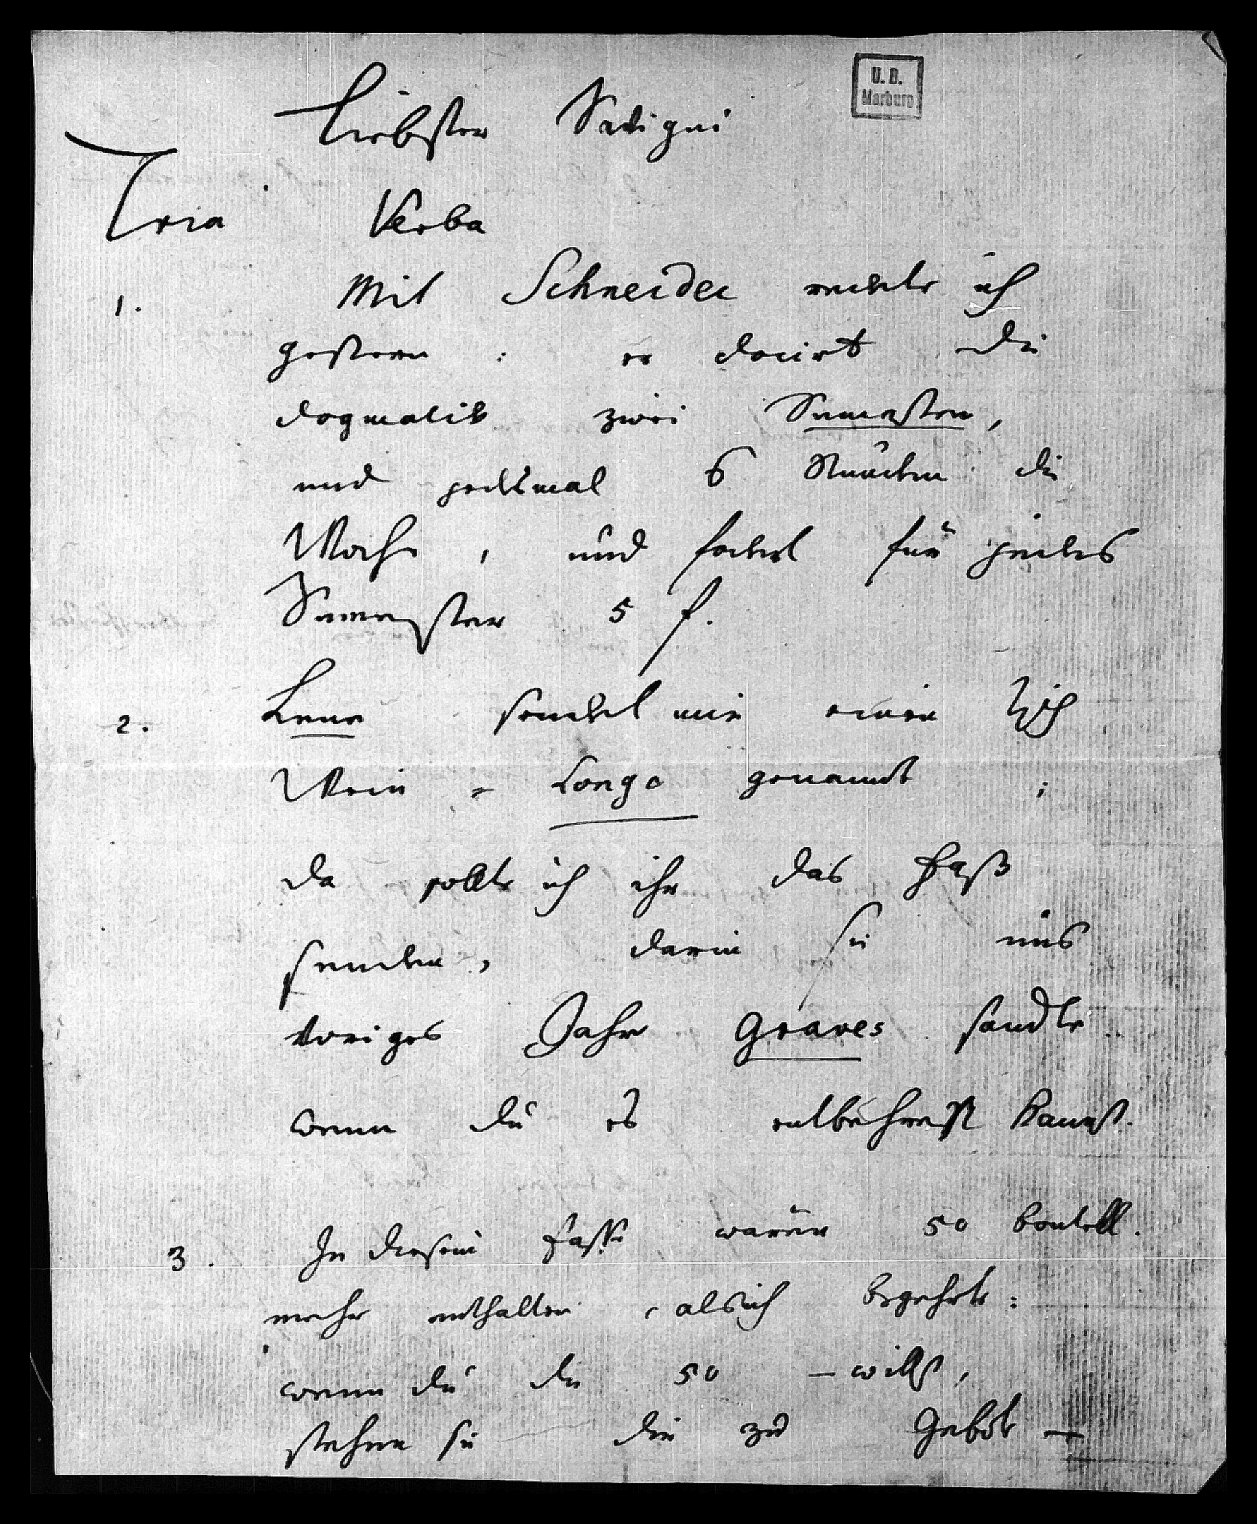 U. B.
Marburg
Liebster Savigni
Tria Verba
1. Mit Schneider redete ich
gestern : er docirt die
dogmatik zwei Semester,
und jedesmal 6 Stunden die
Woche , und fodert für jedes
Semester 5 f.
2. Lene sendet mir einen
Wein = Longo genandt ;
da sollte ich ihr das Faß
senden, darin sie uns
voriges Jahr Graves sandte ..
wenn du es entbehren kanst.
3. In diesem Fasse waren 50 bouteill.
mehr enthalten , als ich begehrte :
wenn du die 50 – willst,
stehen sie dir zu Gebote —